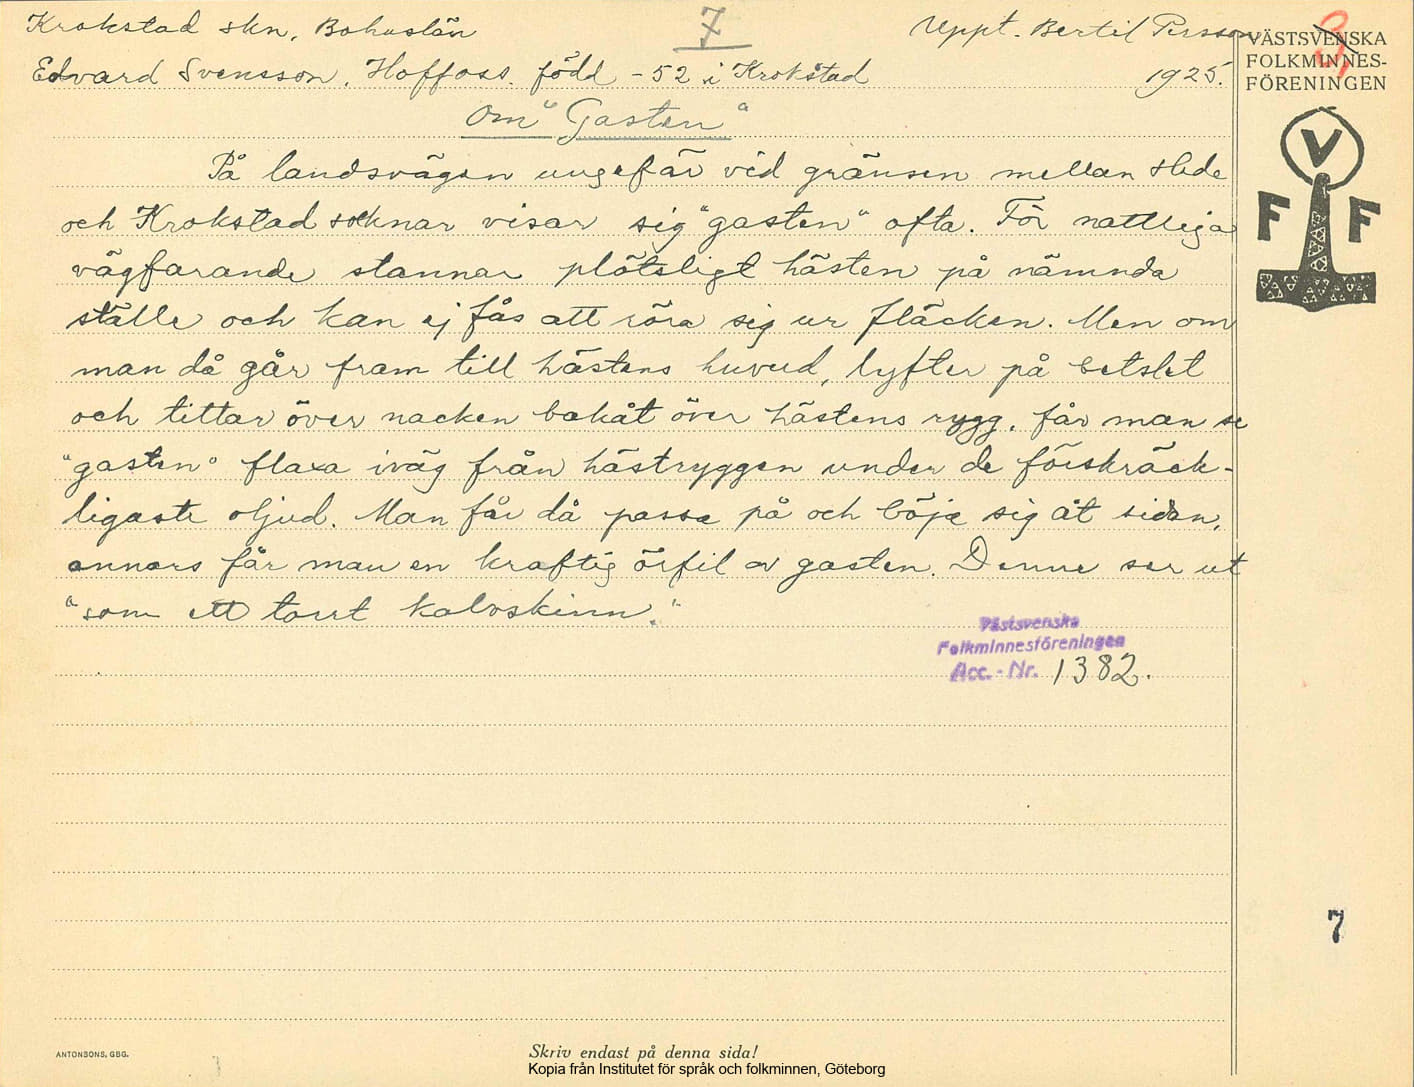 Krokstad skn, Bohuslän
7
Uppt. Bertil Persson
Edvard Svensson, Hoffoss. född -52 i Krokstad
1925.
VÄSTSVENSKA
FOLKMINNES-
FÖRENINGEN
V
F F
Om "Gasten"
På landsvägen ungefär vid gränsen mellan Hede
och Krokstad socknar visar sig "gasten" ofta. För nattliga
vägfarande stannar plötsligt hästen på nämnda
ställe och kan ej fås att röra sig ur fläcken. Men om
man då går fram till hästens huvud, lyfter på betslet
och tittar över nacken bakåt över hästens rygg, får man se
"gasten" flaxa iväg från hästryggen under de förskräck-
ligaste oljud. Man får då passa på och böja sig åt sidan,
annars får man en kraftig örfil av gasten. Denne ser ut
"som ett torrt kalvskinn."
Västsvenska
Folkminnesföreningen
Acc.-Nr. 1382.
7
ANTONSONS, GBG.
Skriv endast på denna sida!
Kopia från Institutet för språk och folkminnen, Göteborg